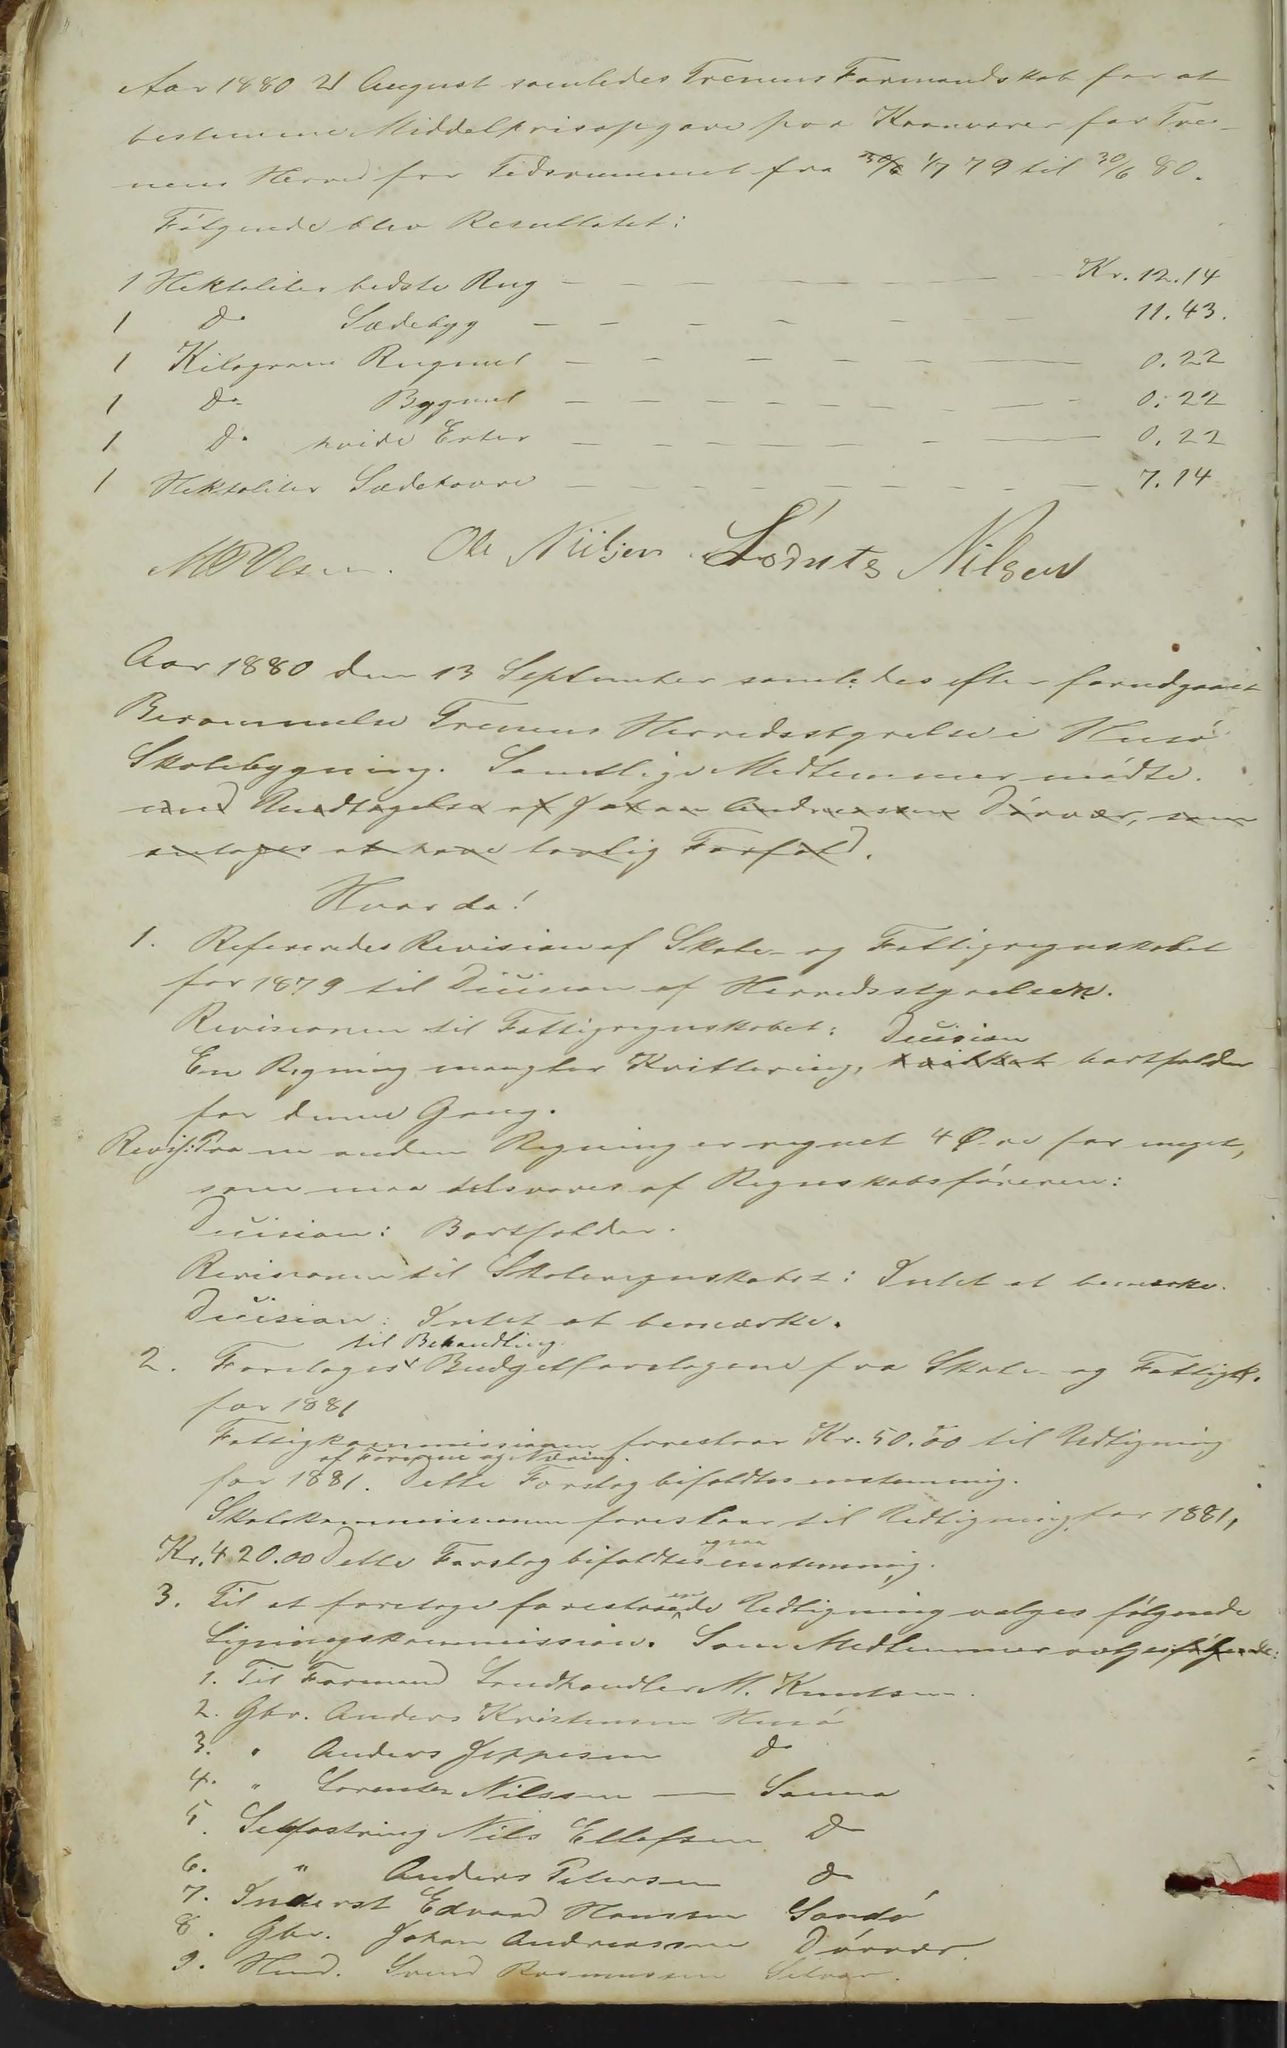 Aar 1880 21 August samledes Trenens Formandskab for at
bestemme Middelprisopgave paa Kornvarer for Tre-
nens Herred for Tidsrummet fra 30/6 1/7 79 til 30/6 80.
Følgende blev Resultatet:
1 Hektoliter bedste Rug - - - - - - Kr. 12.14
1 Do Sædebyg - - - - - - 11.43.
1 Kilogram Rugmel - - - - - 0.22
1 Do Bygmel - - - - - - 0.22
1 Do hvide Erter - - - - - - 0.22
1 Hektoliter Sædehavre - - - - - - 7.14
Ole Nilsen. Lornts Nilsen
Aar 1880 den 13 September samledes efter forudgaaet
Berammelse Trenens Herredsstyrelse i Husø
Skolebygning. Samtlige Medlemmer mødte.
med Undtagelse af Johan Andreassen Dørvær, som
antages at have lovlig Forfald.
Hvorda!
1. Refereredes Revision af Skole- og Fattigregnskabet
for 1879 til Decision af Herredsstyrelsen.
Revisionen til Fattigregnskabet: Decision
En Regning mangler Kvittering, hvilket bortfalder
for denne Gang.
Revis: Paa en anden Regning er regnet 4 Øre for meget,
som maa tilsvares af Regnskabsføreren:
Decision: Bortfalder.
Revisionen til Skoleregnskabet: Intet at bemærke.
Decision: Intet at bemærke.
til Behandling.
2. Foretoges Budgetforslagene fra Skole- og Fattigk.
for 1881
Fattigkommissionen foreslaar Kr. 50.00 til Udligning
af Formue og Næring.
for 1881. Dette Forslag bifaldtes enstemmig.
Skolekommissionen foreslaar til Udligning for 1881,
Kr. 420.00 Dette Forslag bifaldtes ogsaa enstemmig.
3. Til at foretage forestaaende Udligning valges følgende
Ligningskommission. Som Medlemmer valges følgende:
1. Til Formand Landhandler M. Knutsen.
2. Gbr. Anders Kristensen Husø
3. " Anders Jeppesen do
4. " Lorentz Nilssen — Sanna
5. Selfostring Nils Ellefsen Do
6. " Anders Petersen do
7. Inderst Edvard Hansen Sandø
8. Gbr. Johan Andreassen Dørvær
9. Husd. Svend Rasmussen Selvær.